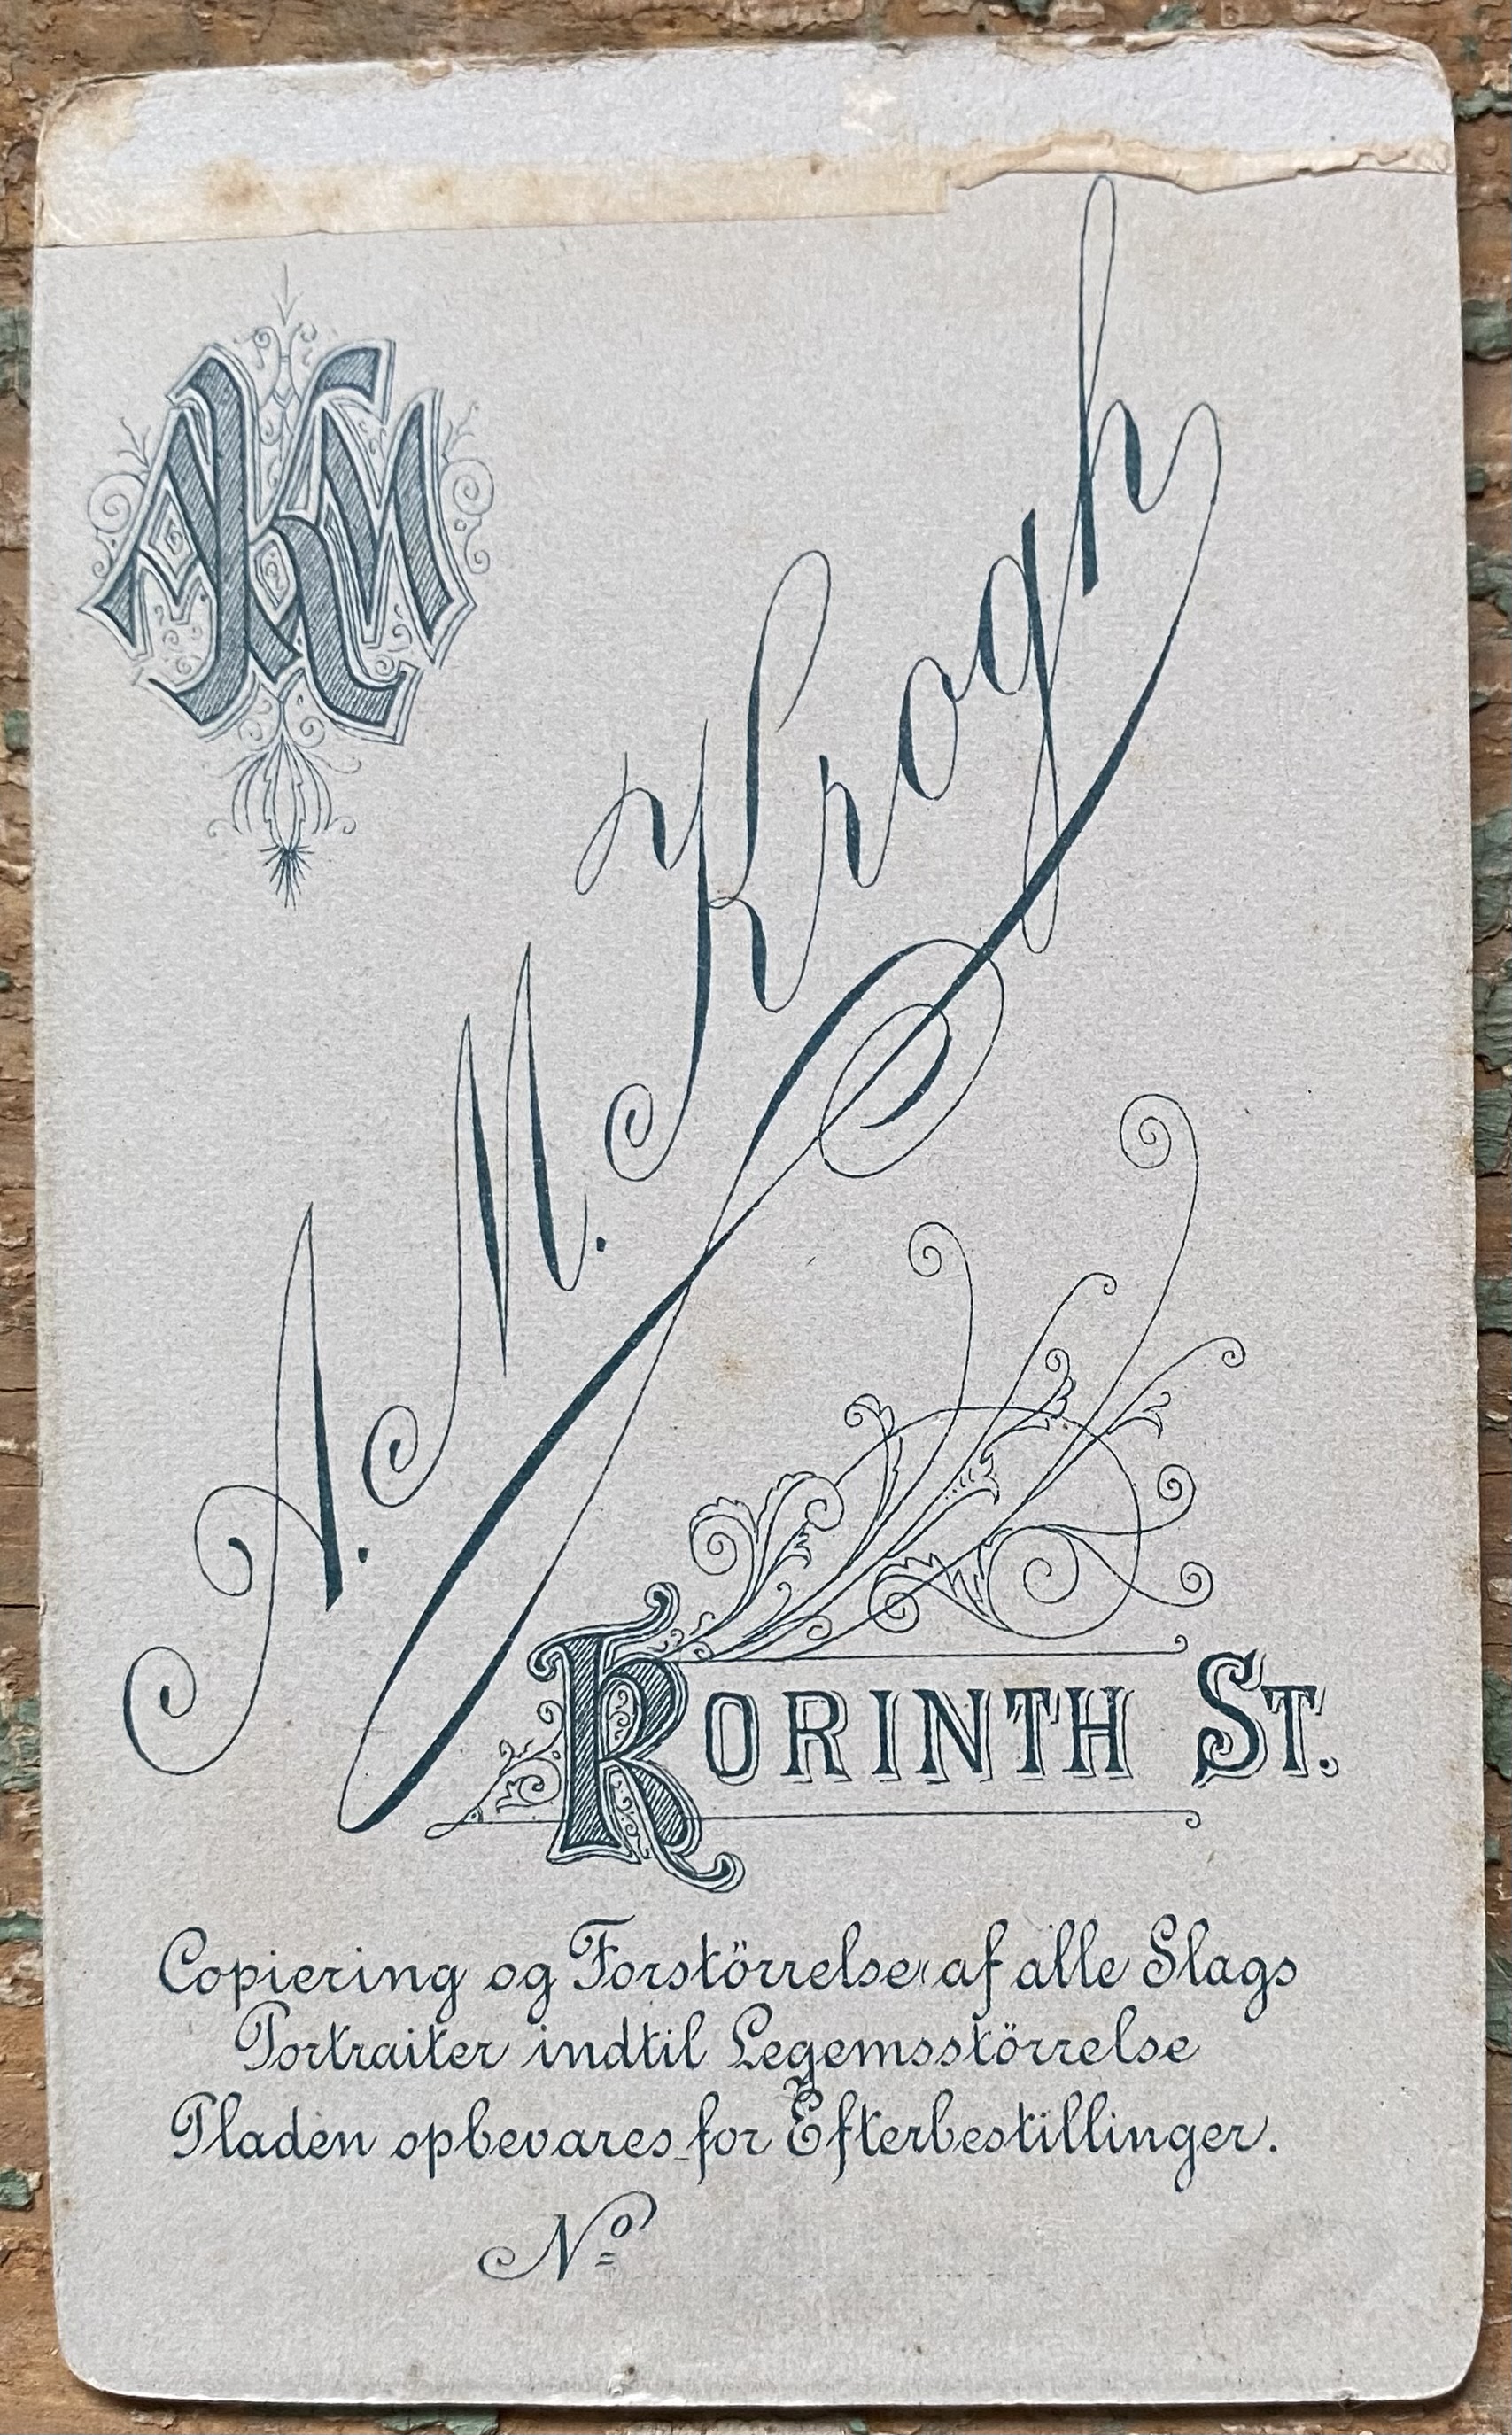 AKM
A. M. Krogh
KORINTH ST.
Copiering og Forstörrelse af alle Slags
Portraiter indtil Legemsstörrelse
Pladen opbevares for Efterbestillinger.
Nº